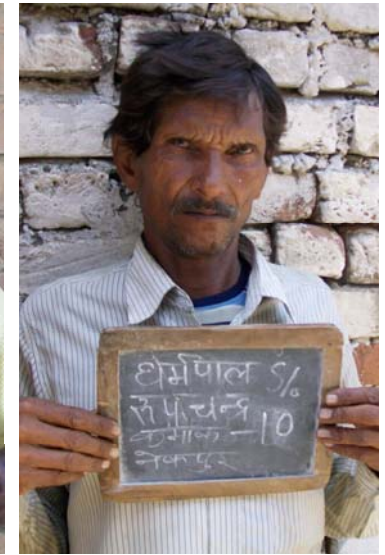 धर्मपाल S/o
रुप चन्द्र
क्रमांक – 10
नेकपुर